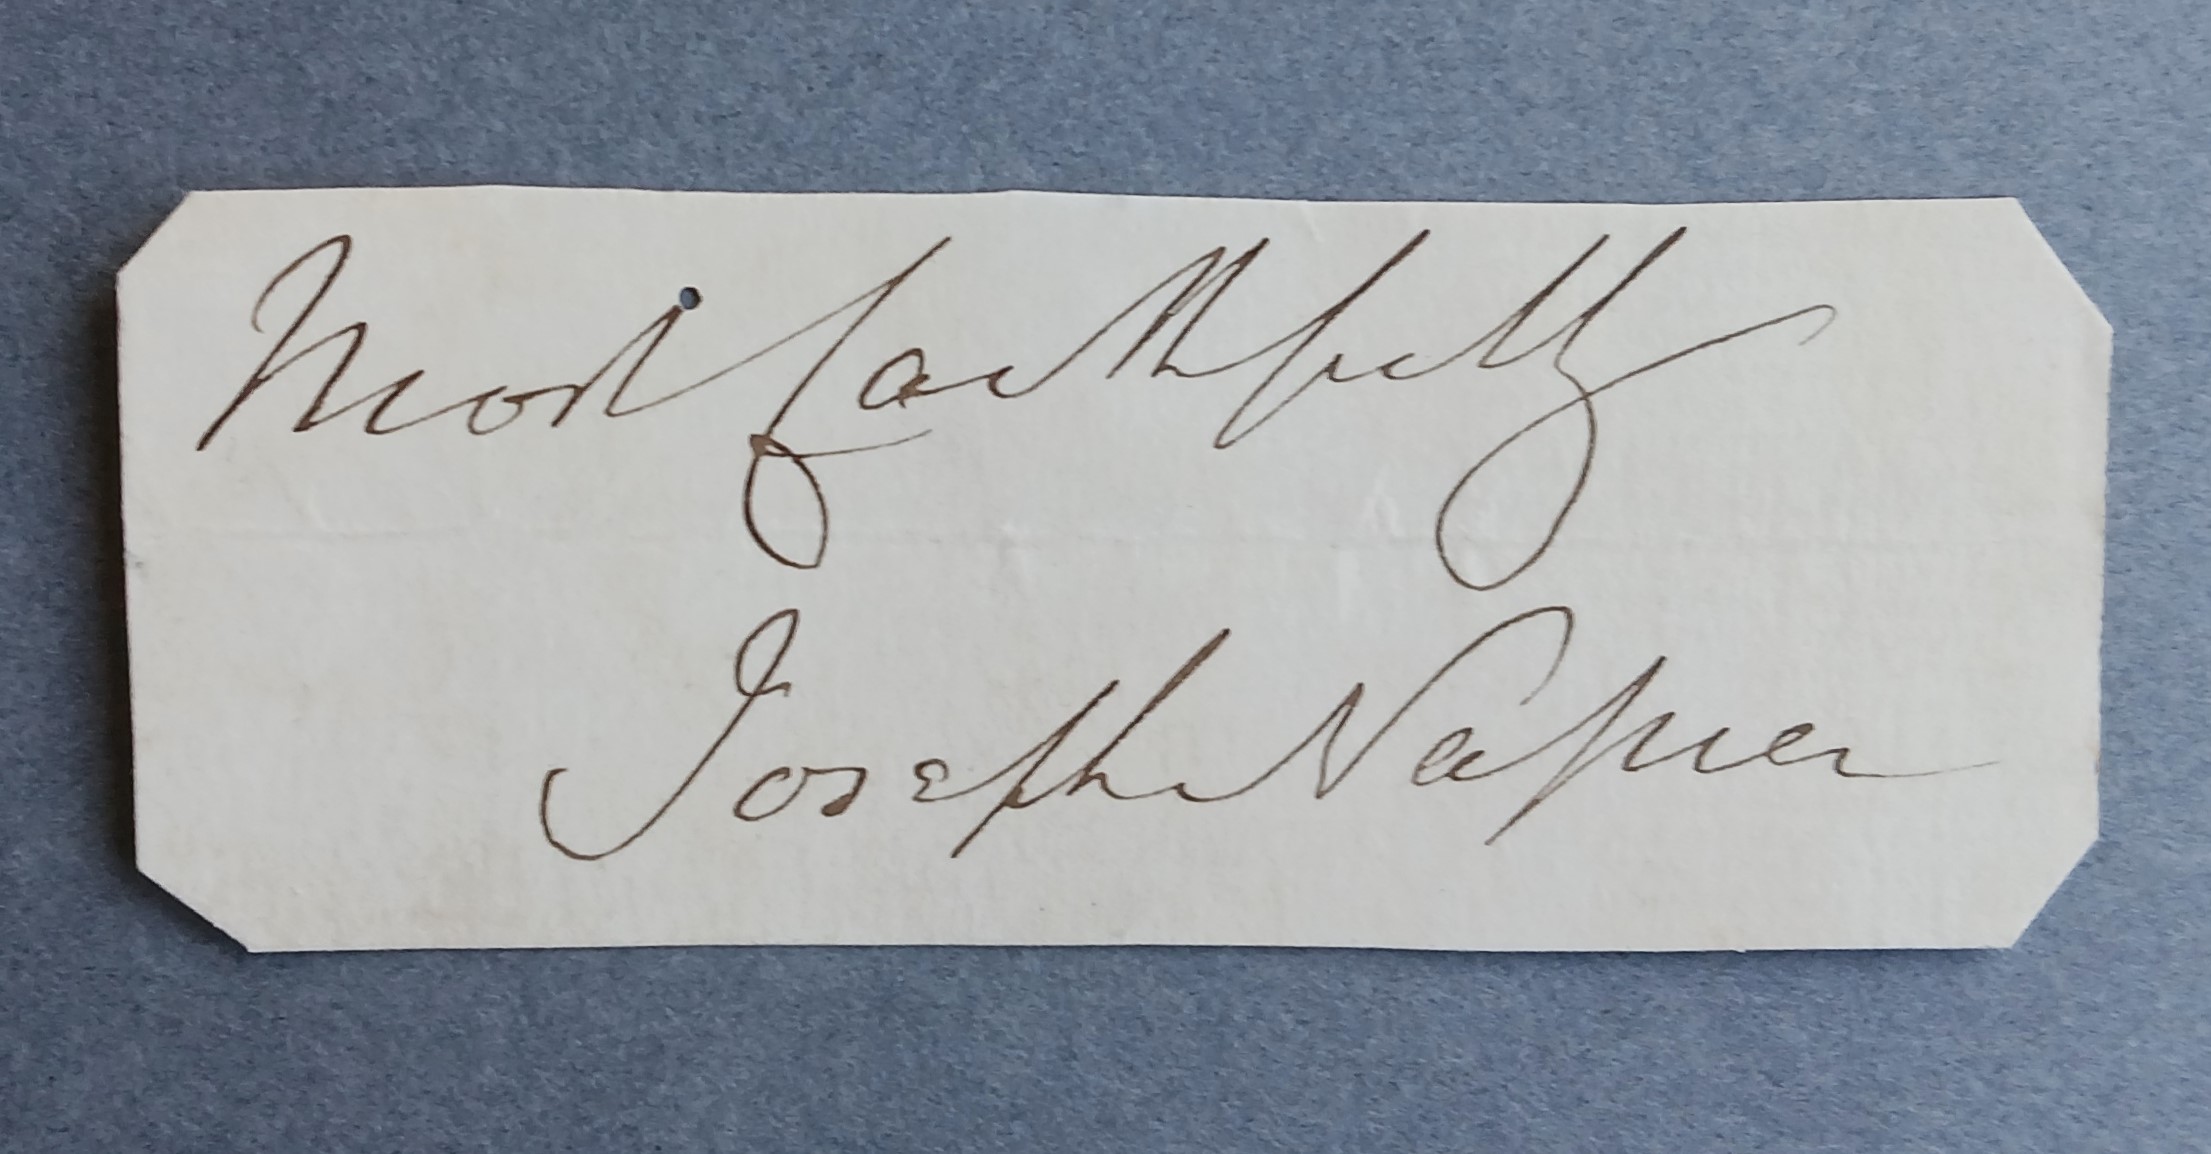 Most faithfully
Joseph Napier